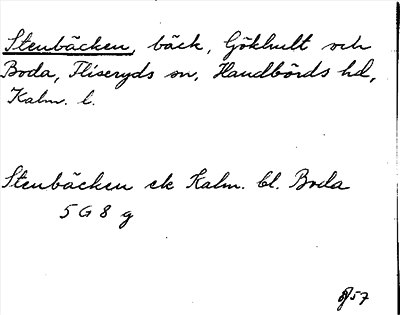 Stenbäcken, bäck, Gökhult och
Boda, Fliseryds sn, Handbörds hd,
Kalm. l.
Stenbäcken ek Kalm. bl. Boda
5 G 8 g
57